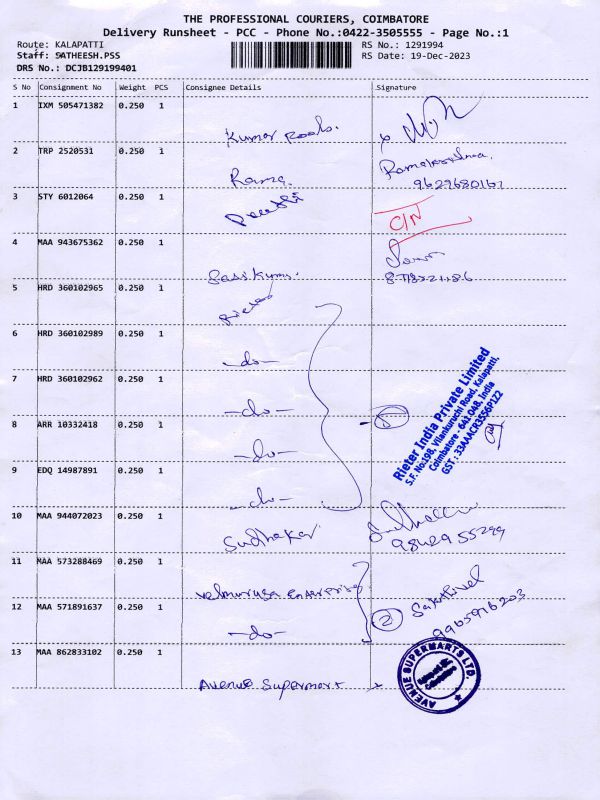 THE PROFESSIONAL COURIERS, COIMBATORE
Delivery Runsheet - PCC - Phone No.:0422-3505555 - Page No.:1
Route: KALAPATTI
RS No.: 1291994
Staff: SATHEESH.PSS
RS Date: 19-Dec-2023
DRS No.: DCJB129199401
S No Consignment No Weight PCS Consignee Details Signature
1 IXM 505471382 0.250 1
Kumar
2 TRP 2520531 0.250 1
Rama Ramakrishna
9629680161
3 STY 6012064 0.250 1
C/N
4 MAA 943675362 0.250 1
Sasikumar
5 HRD 360102965 0.250 1
6 HRD 360102989 0.250 1
-do-
7 HRD 360102962 0.250 1
-do-
8 ARR 10332418 0.250 1
-do-
5
Rieter India Private Limited
S.F. No:198, Vilankuruchi Road, Kalapatti,
Coimbatore - 641 048, India
GST : 33AAACR3556P1Z2
9 EDQ 14987891 0.250 1
-do-
10 MAA 944072023 0.250 1
Sudhakar
98429 55299
11 MAA 573288469 0.250 1
Velmuruga Enterprise
12 MAA 571891637 0.250 1
-do-
2 Sakthivel
9965916203
13 MAA 862833102 0.250 1
Avenue Supermart x
AVENUE SUPERMARTS LTD.